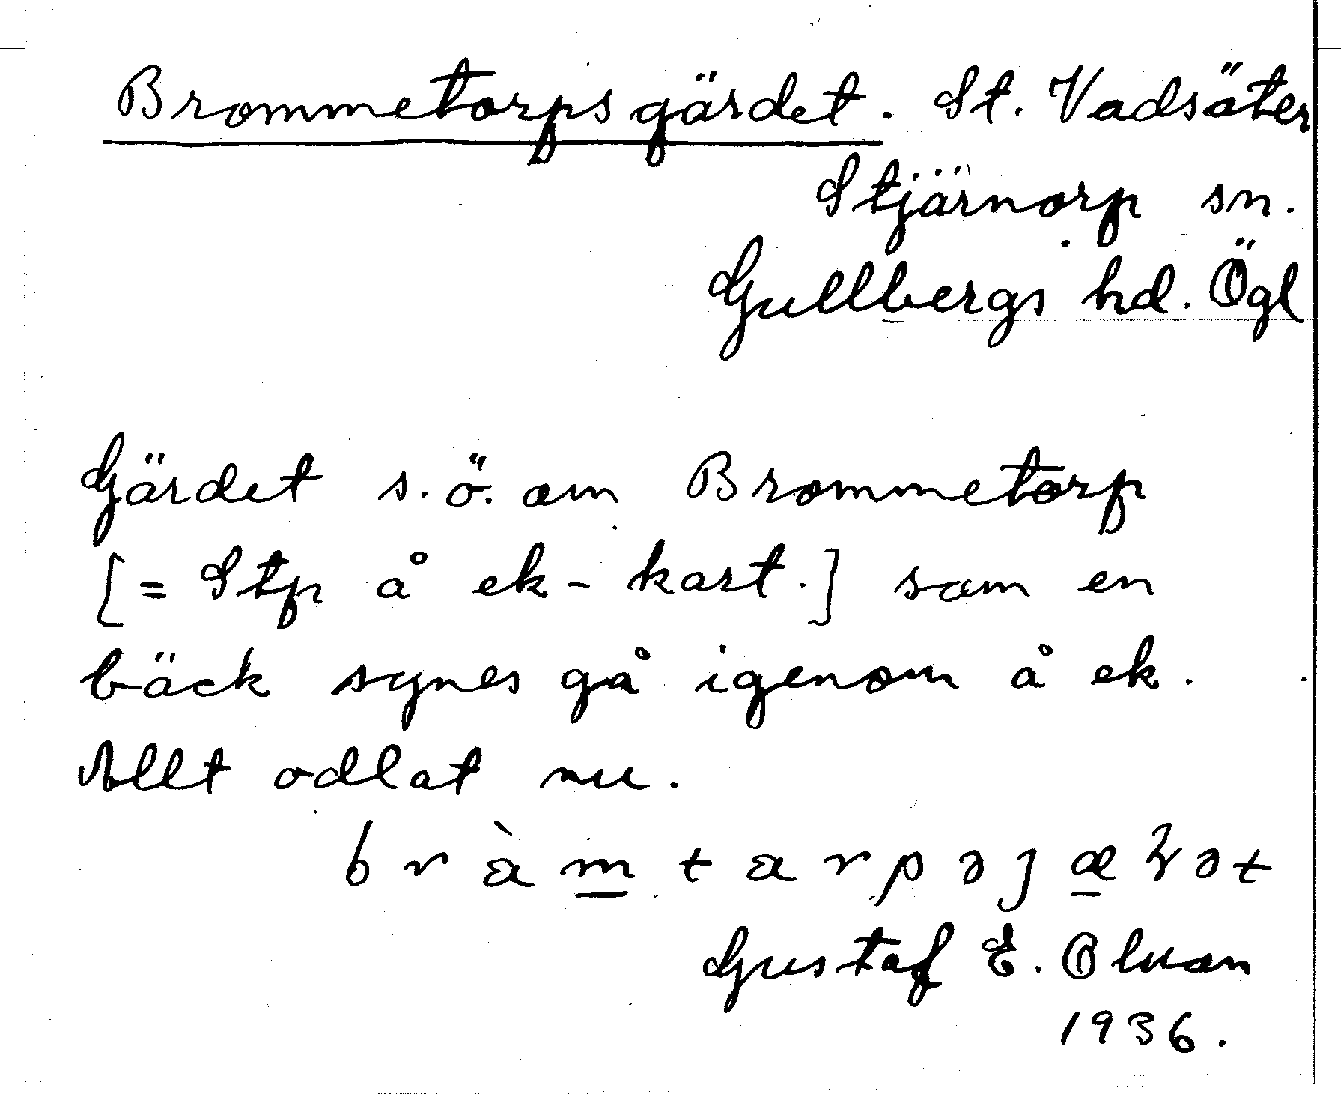 Brommetorpsgärdet. St. Vadsäter
Stjärnorp sn.
Gullbergs hd. Ögl
Gärdet s.ö. om Brommetorp
[= Stp å ek-kart.] som en
bäck synes gå igenom å ek.
Allt odlat nu.
Gustaf E.
1936.